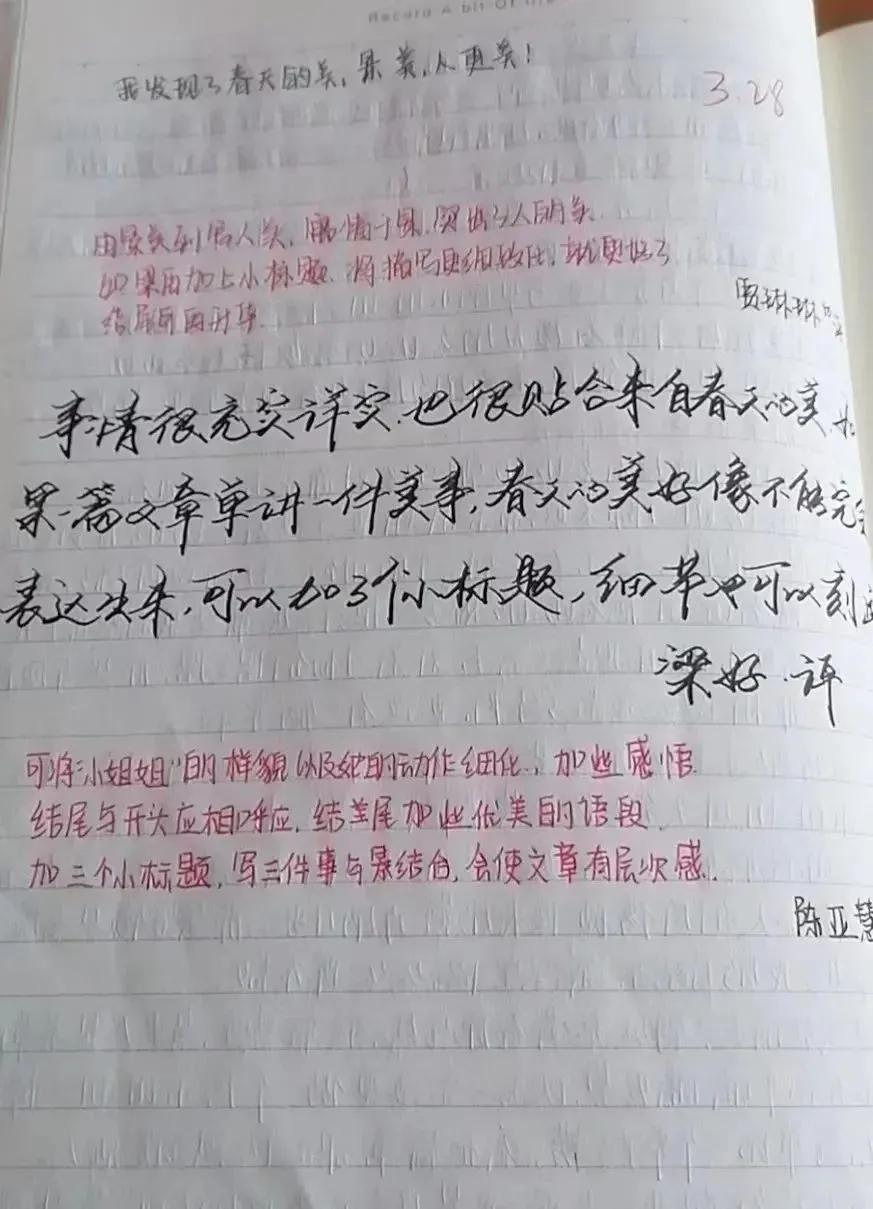 Record A bit Of
我发现了春天的美，景美，人更美！
3.28
由景美到写人美，融情于景，突出了人的美.
如果再加上小标题，将描写更细致些，就更好了
结尾可再升华.
贾琳琳
事情很充实详实.也很贴合来自春天的美.如
果一篇文章单讲一件美事，春天的美好像不能完全
表达出来，可以加3个小标题，细节也可以刻
梁好.评
可将"小姐姐"的样貌以及她的动作细化，加些感悟.
结尾与开头应相呼应，结尾加些优美的语段.
加三个小标题，写三件事与景结合，会使文章有层次感.
陈亚慧